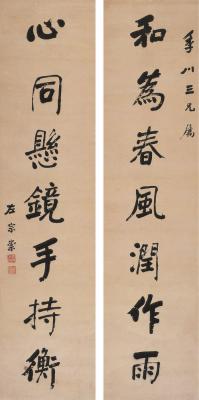 季川三兄屬
和為春風潤作雨
心同懸鏡手持衡
左宗棠